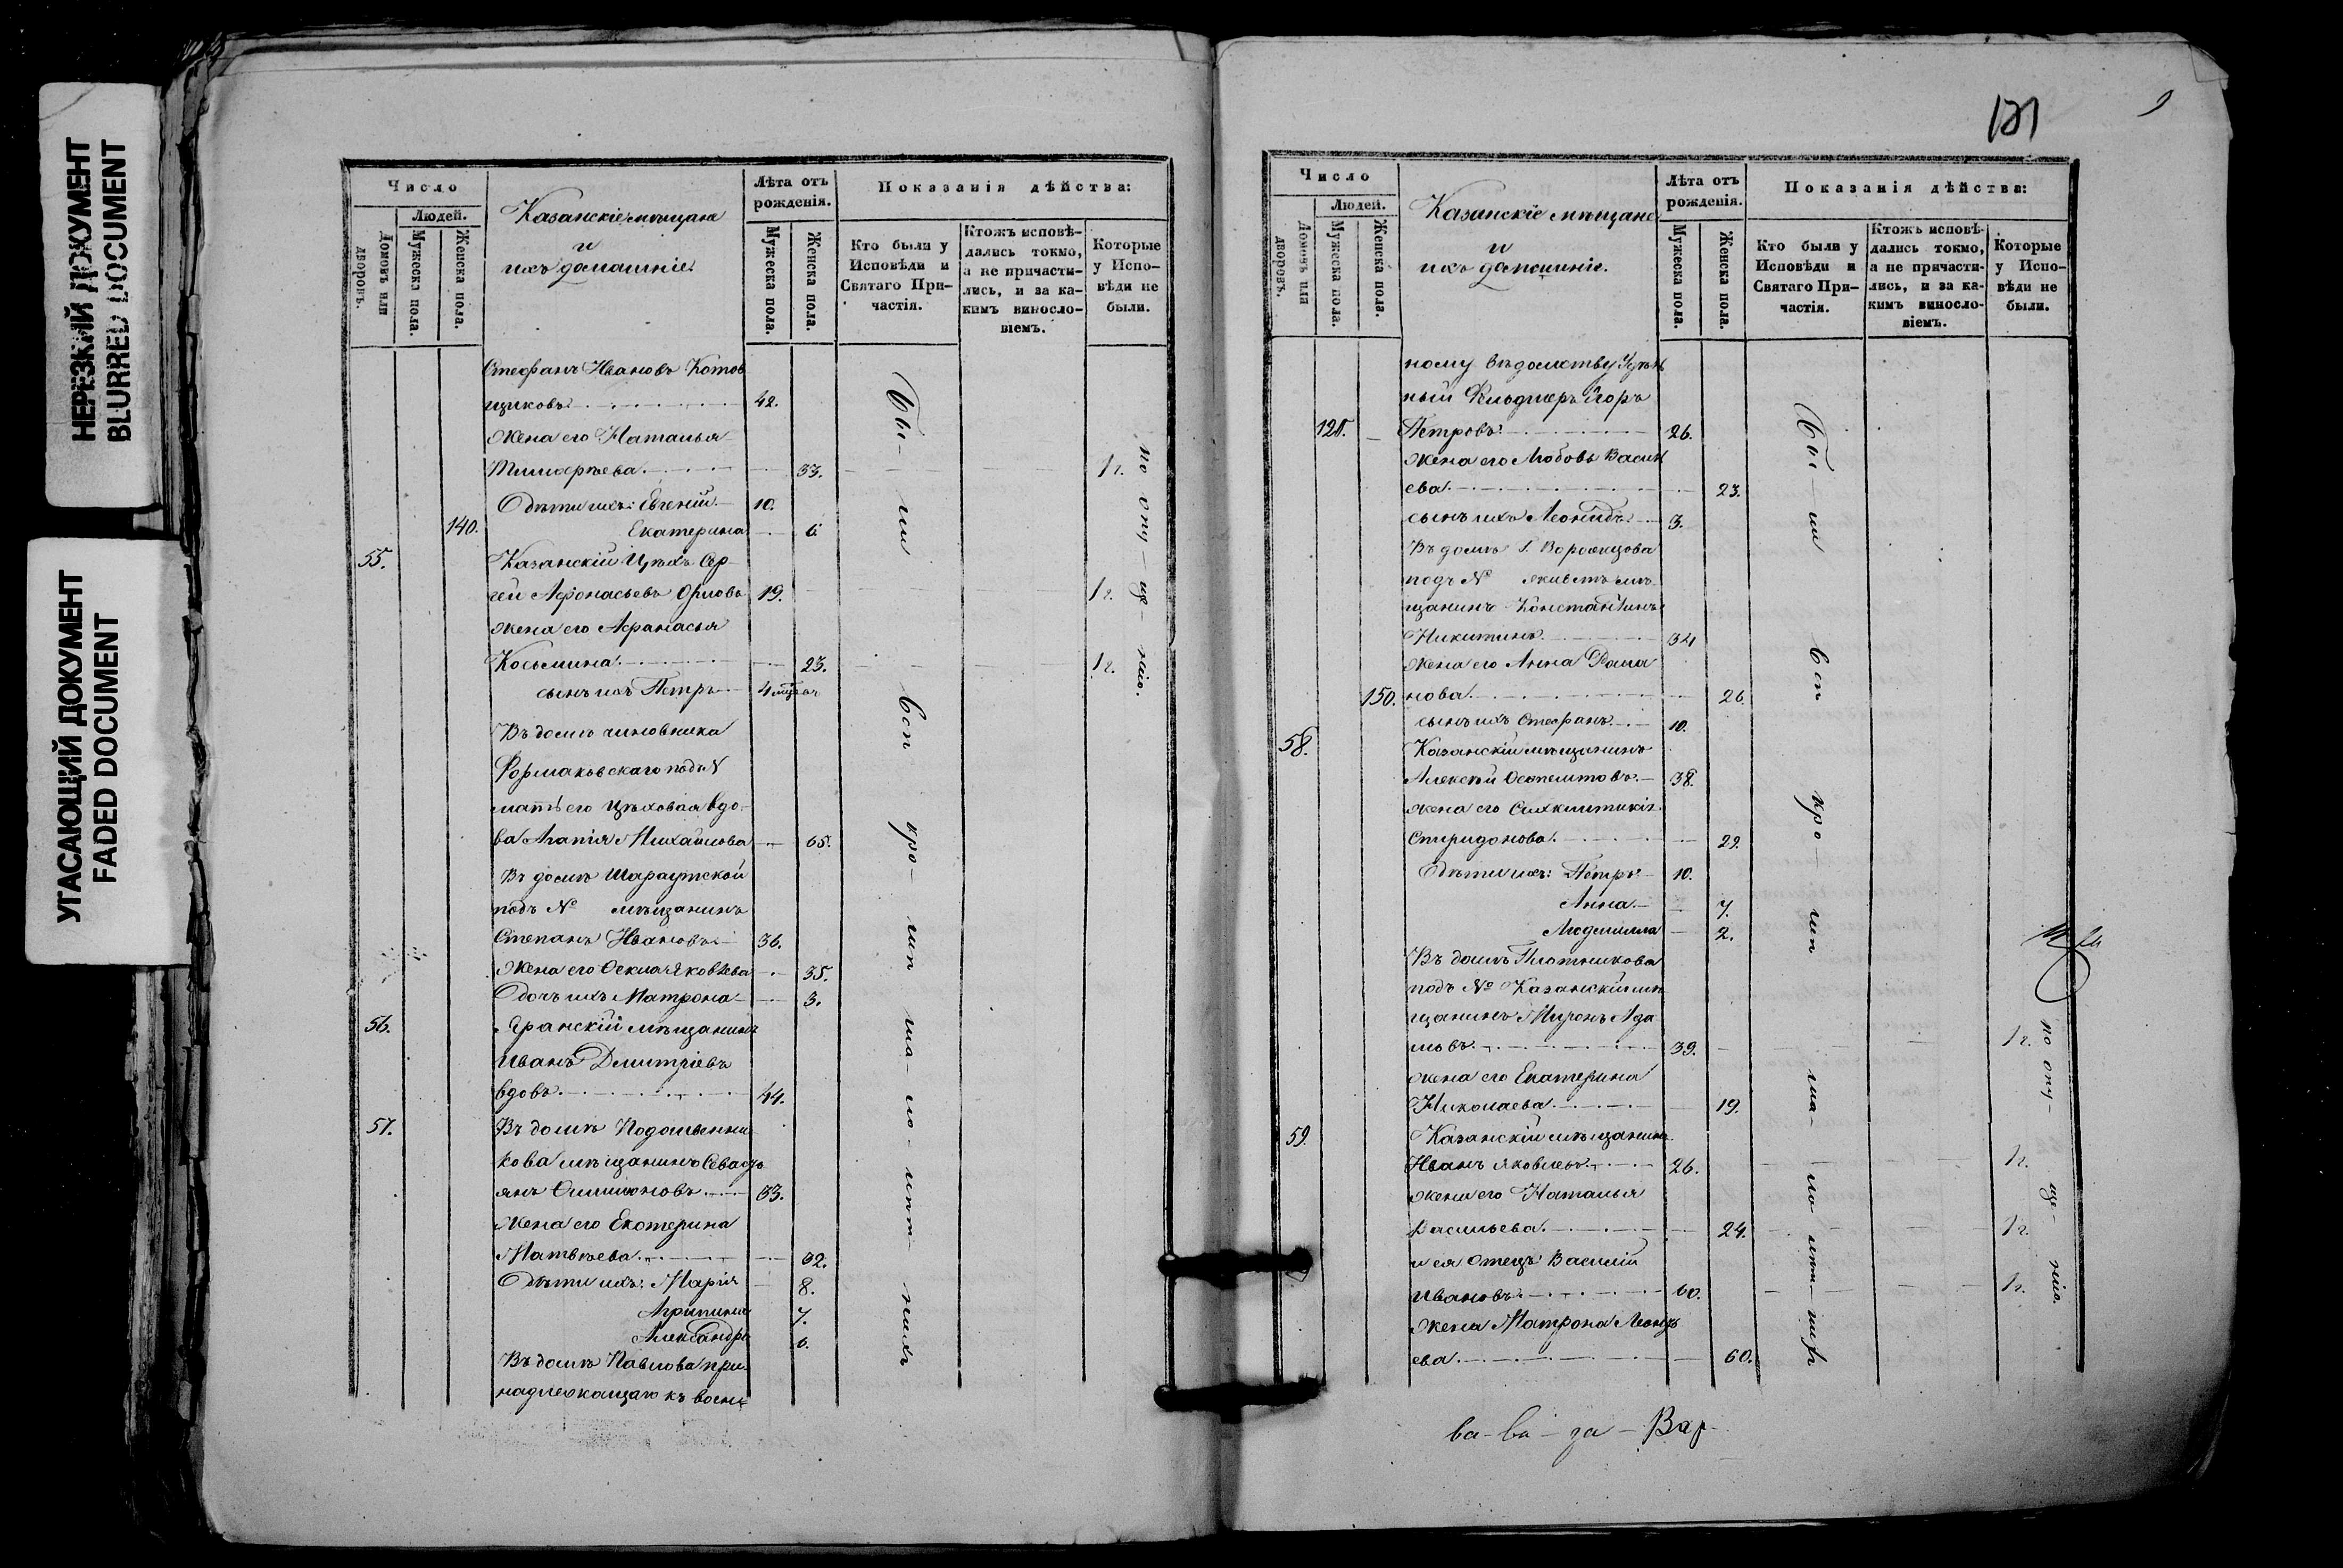 НЕРЕЗКИЙ ДОКУМЕНТ
BLURRED DOCUMENT
УГАСАЮЩИЙ ДОКУМЕНТ
FADED DOCUMENT
Число
Людей.
Домовъ или дворовъ.
Мужеска пола.
Женска пола.
Казанскіе мѣщане
и
ихъ домашніе.
Лѣта отъ рожденія.
Мужеска пола.
Женска пола.
Показанія дѣйства:
Кто были у Исповѣди и Святаго Причастія.
Ктожъ исповѣдались токмо, а не причастились, и за какимъ винословіемъ.
Которые у Исповѣди не были.
Стефанъ Ивановъ Котов
щиковъ 42.
жена его Наталья
Тимофѣева 33. 1 г.
Дѣти ихъ: Евгеній 10.
140. Екатерина 6.
55. Казанскій Цѣхъ. Сер-
гей Афонасьевъ Орловъ 19. 1 г.
жена его Афанасья
Косьмина 23. 1 г.
сынъ ихъ Петръ
Въ домѣ чиновника
Формаковскаго подъ N
мать его цѣховая вдо-
ва Агапія Михайлова 65.
Въ домѣ Шараутской
подъ № мѣщанинъ
Степанъ Ивановъ 36.
жена его Ѳекла Яковлева 35.
Дочь ихъ Матрона 3.
56. Яранскій мѣщанинъ
Иванъ Дмитріевъ
вдовъ 44.
57. Въ домѣ Подошвенни
кова мѣщанинъ Севастъ
янъ 33.
жена его Екатерина
Матвѣева 32.
Дѣти ихъ: Марія 8.
Агрипина 7.
Александра 6.
Въ домѣ Павлова при-
надлежащаго къ воен-
Бы-ли вси кро-ми ма-ло-лѣт-нихъ
по опу-ще-нію.
131
Число
Людей.
Домовъ или дворовъ.
Мужеска пола.
Женска пола.
Казанскіе мѣщане
и
ихъ домашніе.
Лѣта отъ рожденія.
Мужеска пола.
Женска пола.
Показанія дѣйства:
Кто были у Исповѣди и Святаго Причастія.
Ктожъ исповѣдались токмо, а не причастились, и за какимъ винословіемъ.
Которые у Исповѣди не были.
ному вѣдомству
ный Фельдшеръ Егоръ
Петровъ 26.
жена его Любовь Василь
ева 23.
сынъ ихъ Леонидъ 3.
Въ домѣ Г. Воронцова
подъ № жив. мѣ-
щанинъ Константинъ
Никитинъ 34
жена его Анна Рома
150. нова 26.
сынъ ихъ Стефанъ 10.
58. Казанскій мѣщанинъ
Алексѣй 38.
жена его
Спиридонова 29.
Дѣти ихъ: Петръ 10.
Анна 7.
Людмилла 2.
Въ домѣ Плотникова
подъ № Казанскій мѣ
щанинъ Миронъ Ада
мовъ 39. 1 г.
жена его Екатерина
Николаева 19.
59. Казанскій мѣщанинъ
Иванъ Яковлевъ 26. 1 г.
жена его Наталья
Васильева 24. 1 г.
и ея Отецъ Василій
Ивановъ 60. 1 г.
жена Матрона Леонть
ева 60.
Бы-ли вси кро-ми ма-ло лѣт-нихъ
по опу-ще-нію.
ва-ва-да-Вар-